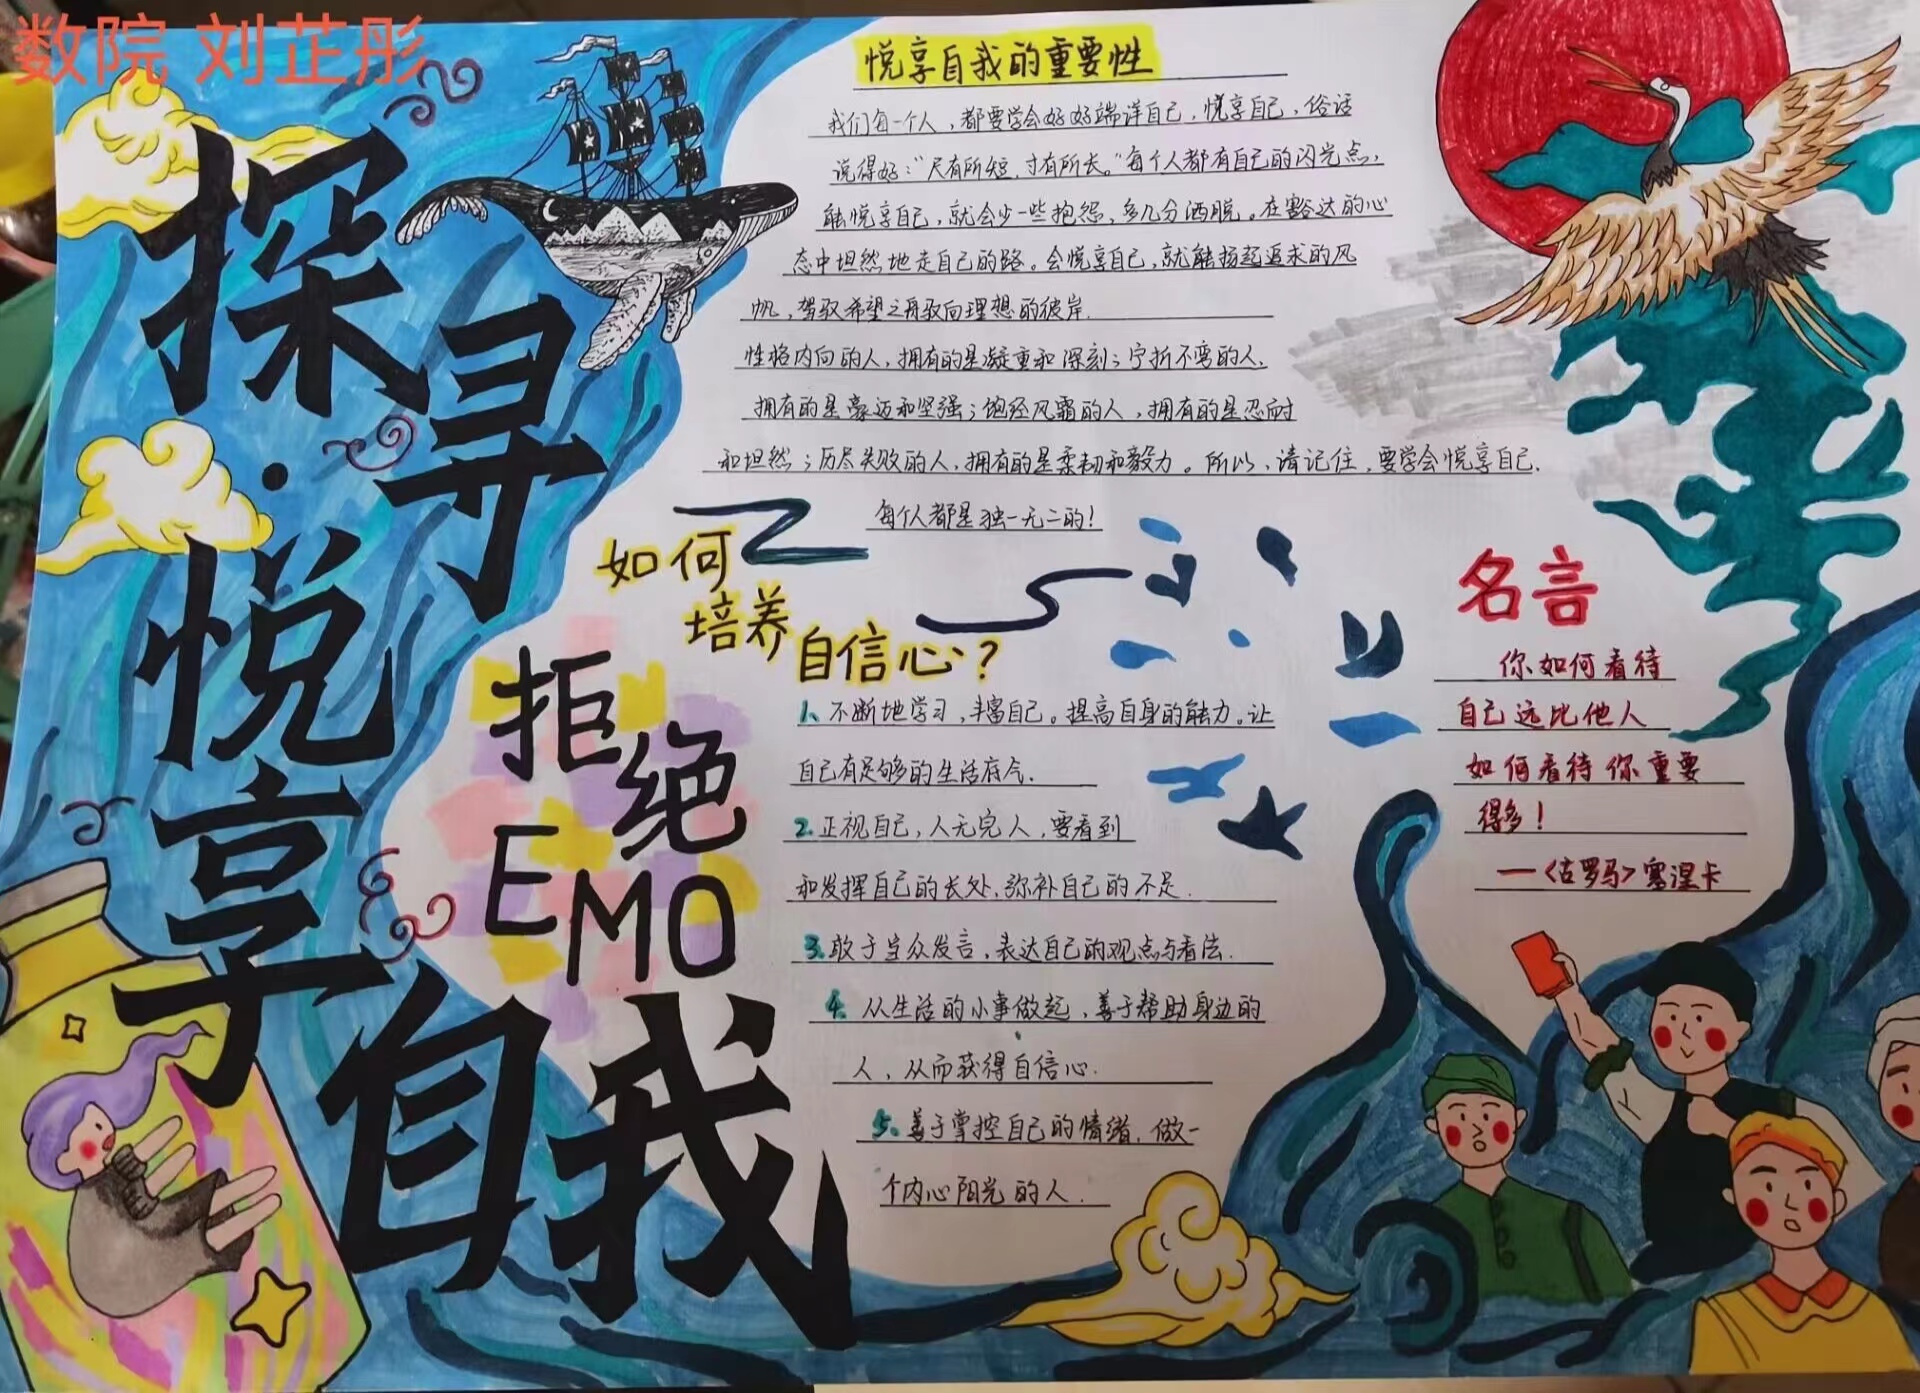 数院 刘芷彤
探寻
·
悦享自我
拒绝
EMO
悦享自我的重要性
我们每一个人，都要学会好好端详自己，悦享自己，俗话
说得好："尺有所短，寸有所长。"每个人都有自己的闪光点，
能悦享自己，就会少一些抱怨，多几分洒脱。在豁达的心
态中坦然地走自己的路。会悦享自己，就能扬起追求的风
帆，驾驭希望之舟驶向理想的彼岸.
性格内向的人，拥有的是凝重和深刻；宁折不弯的人，
拥有的是豪迈和坚强；饱经风霜的人，拥有的是忍耐
和坦然；历尽失败的人，拥有的是柔韧和毅力。所以，请记住，要学会悦享自己.
每个人都是独一无二的！
如何
培养
自信心？
1、不断地学习，丰富自己。提高自身的能力。让
自己有足够的生活底气.
2、正视自己，人无完人，要看到
和发挥自己的长处，弥补自己的不足.
3、敢于当众发言，表达自己的观点与看法.
4、从生活的小事做起，善于帮助身边的
人，从而获得自信心.
5、善于掌控自己的情绪，做一
个内心阳光的人.
名言
你如何看待
自己远比他人
如何看待你重要
得多！
—〈古罗马〉塞涅卡